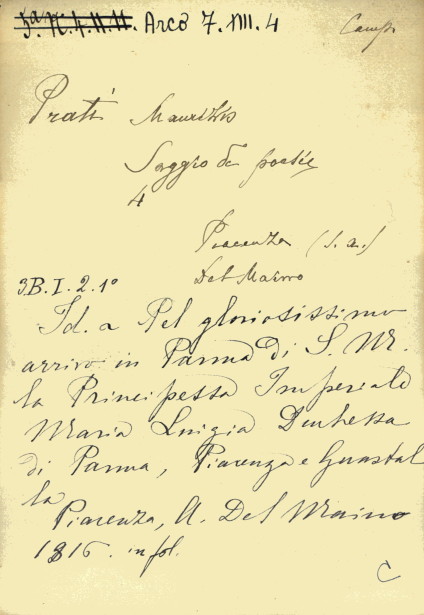 Arco 7. VIII. 4
Prati Maurizio
Saggio di poesie
4
Piacenza (s.a.)
Del Maino
3B. I. 2. 1º
Id. a Pel gloriosissimo
arrivo in Parma di S. M.
la Principessa Imperiale
Maria Luigia Duchessa
di Parma, Piacenza e Guastal
la
Piacenza, A. Del Maino
1816. in fol.
C